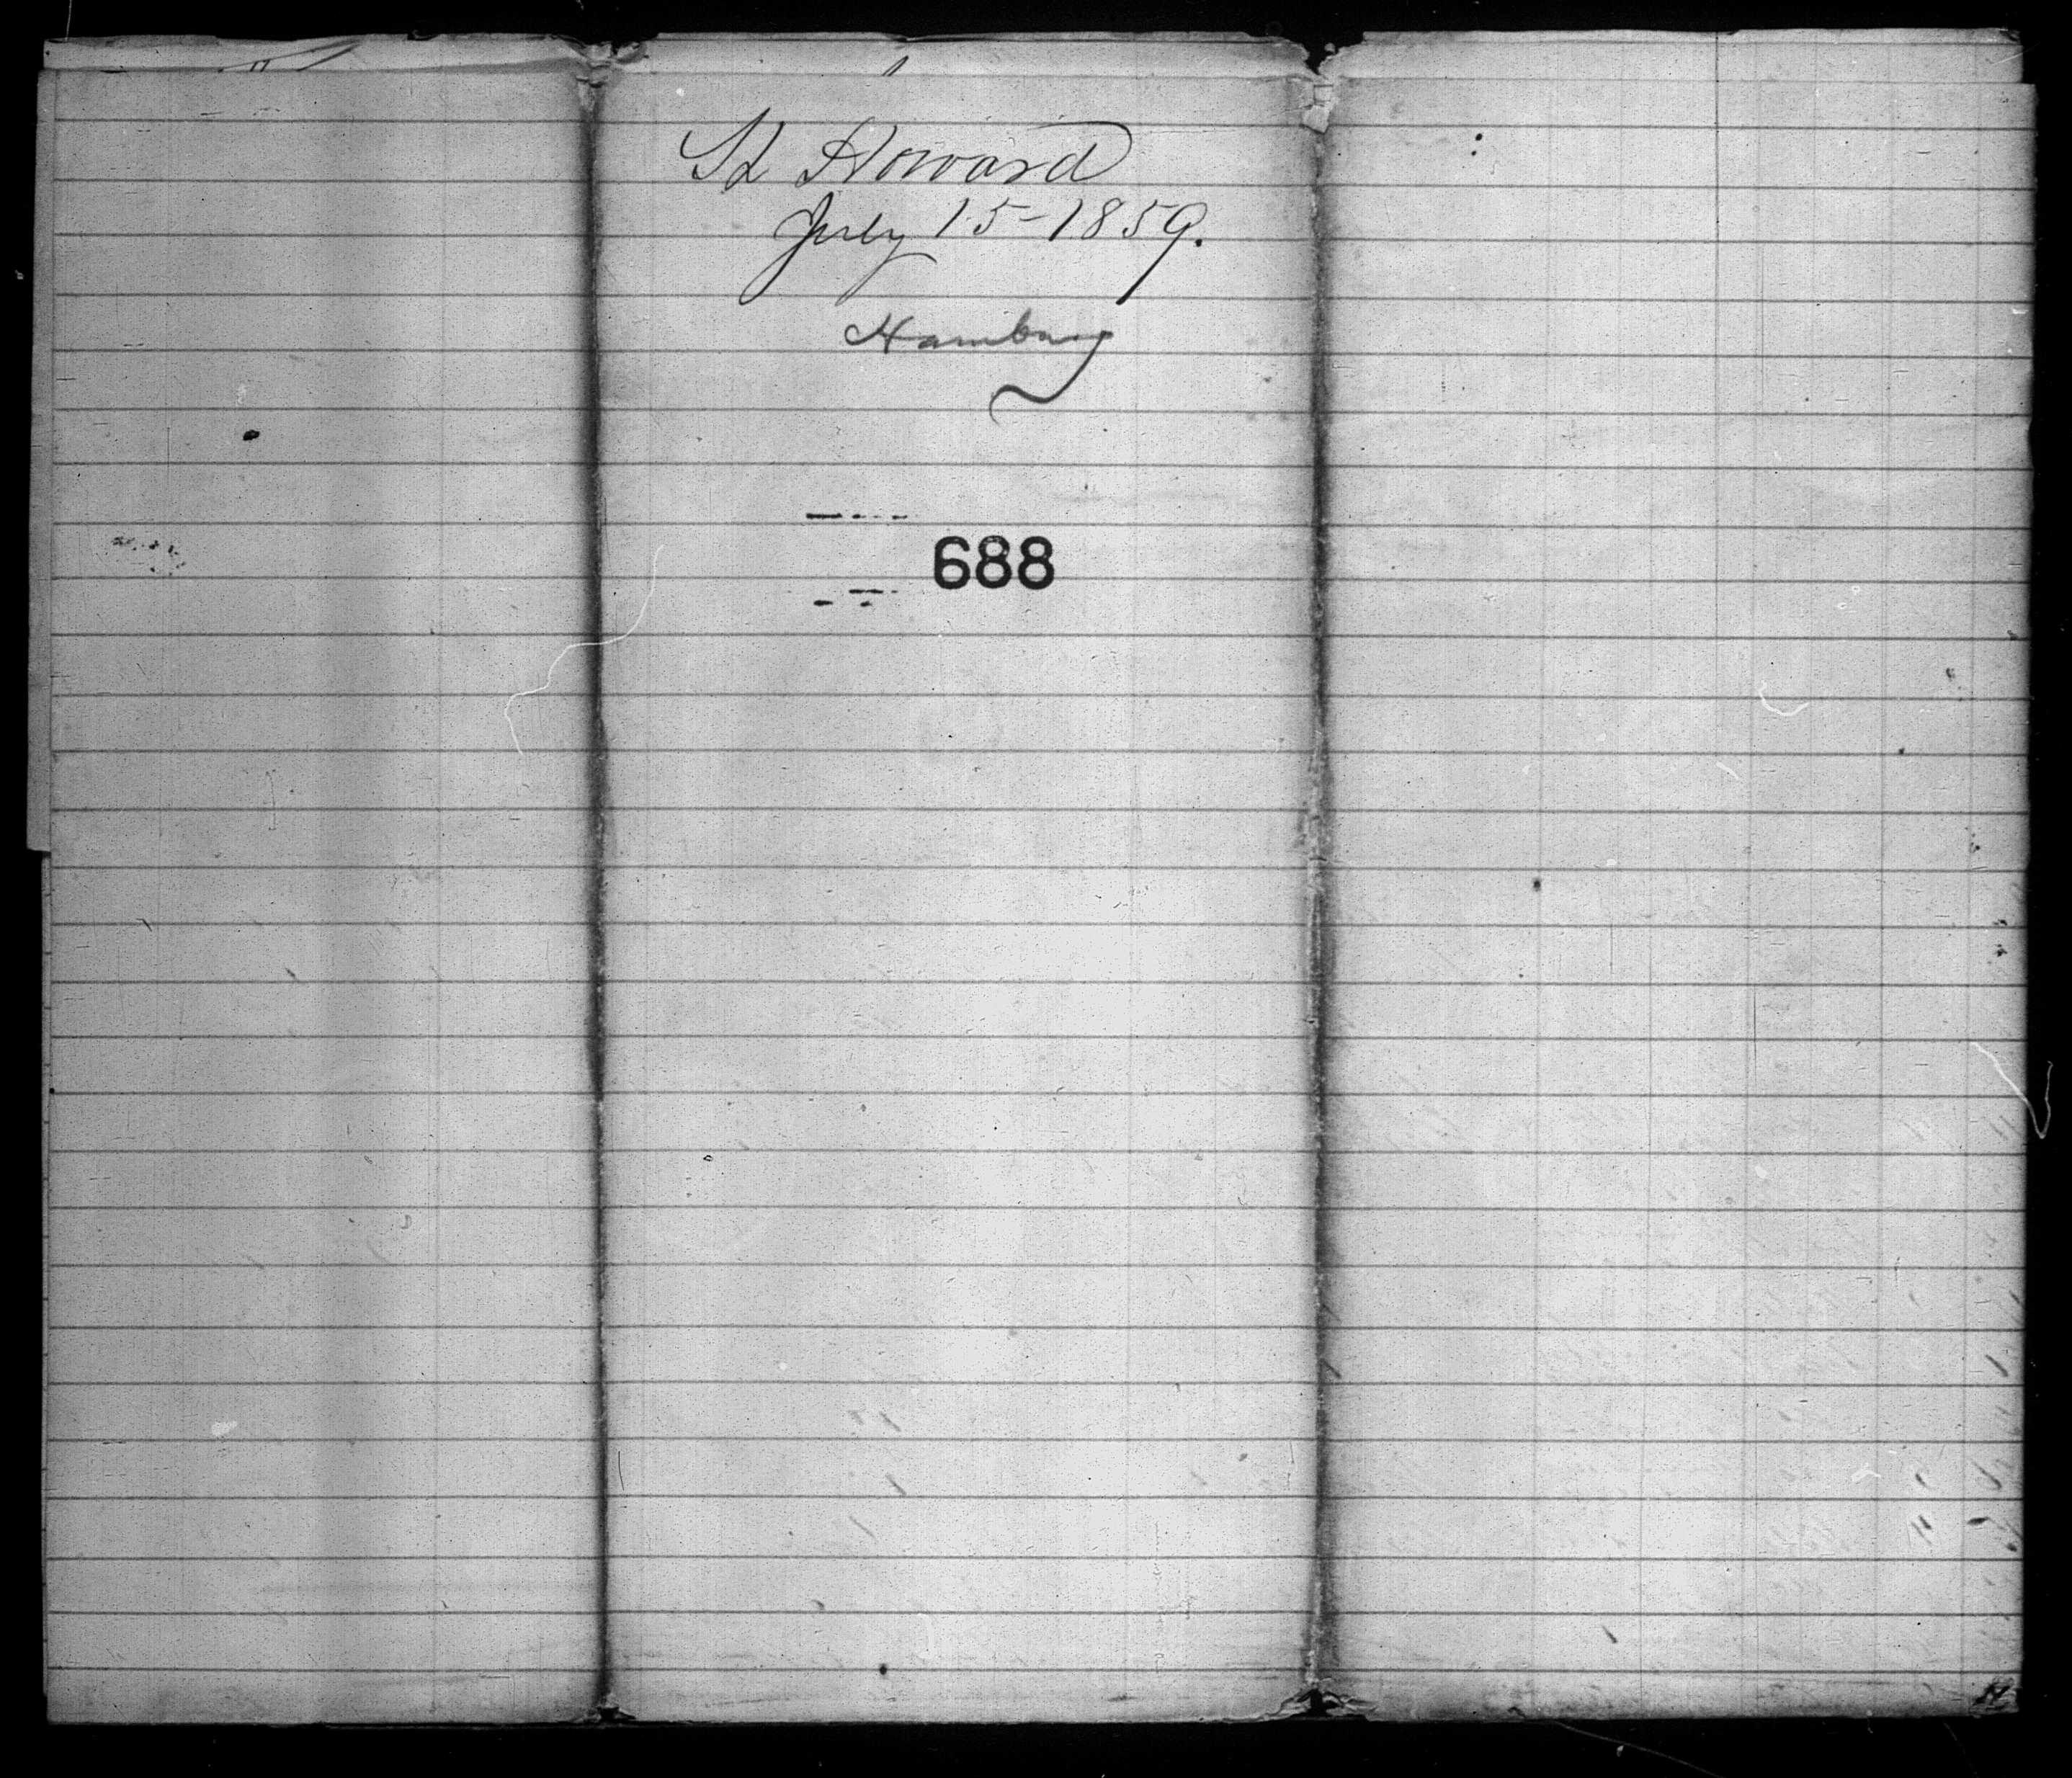 St Howard
July 15-1859.
Hamburg
688